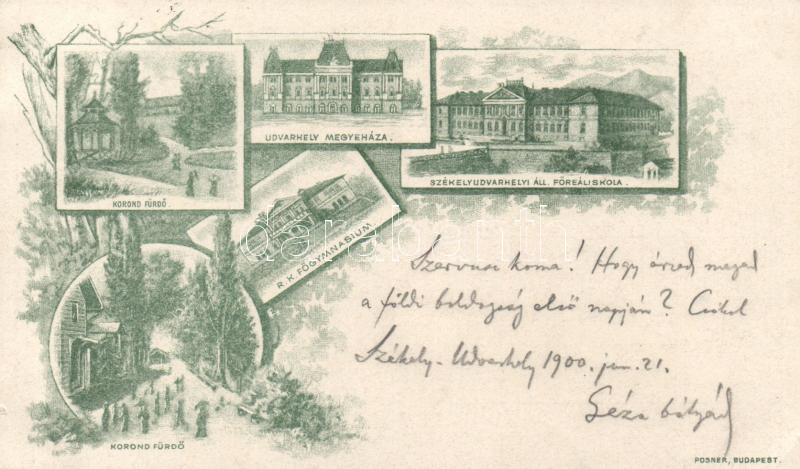 KOROND FÜRDŐ.
UDVARHELY MEGYEHÁZA.
SZÉKELYUDVARHELYI ÁLL. FŐREÁLISKOLA.
R. K. FŐGYMNASIUM
KOROND FÜRDŐ
darabanth
Szervusz koma! Hogy érzed magad
a földi boldogság első napján? Csókol
Székely-Udvarhely 1900. jan. 21.
Géza bátyád
POSNER, BUDAPEST.